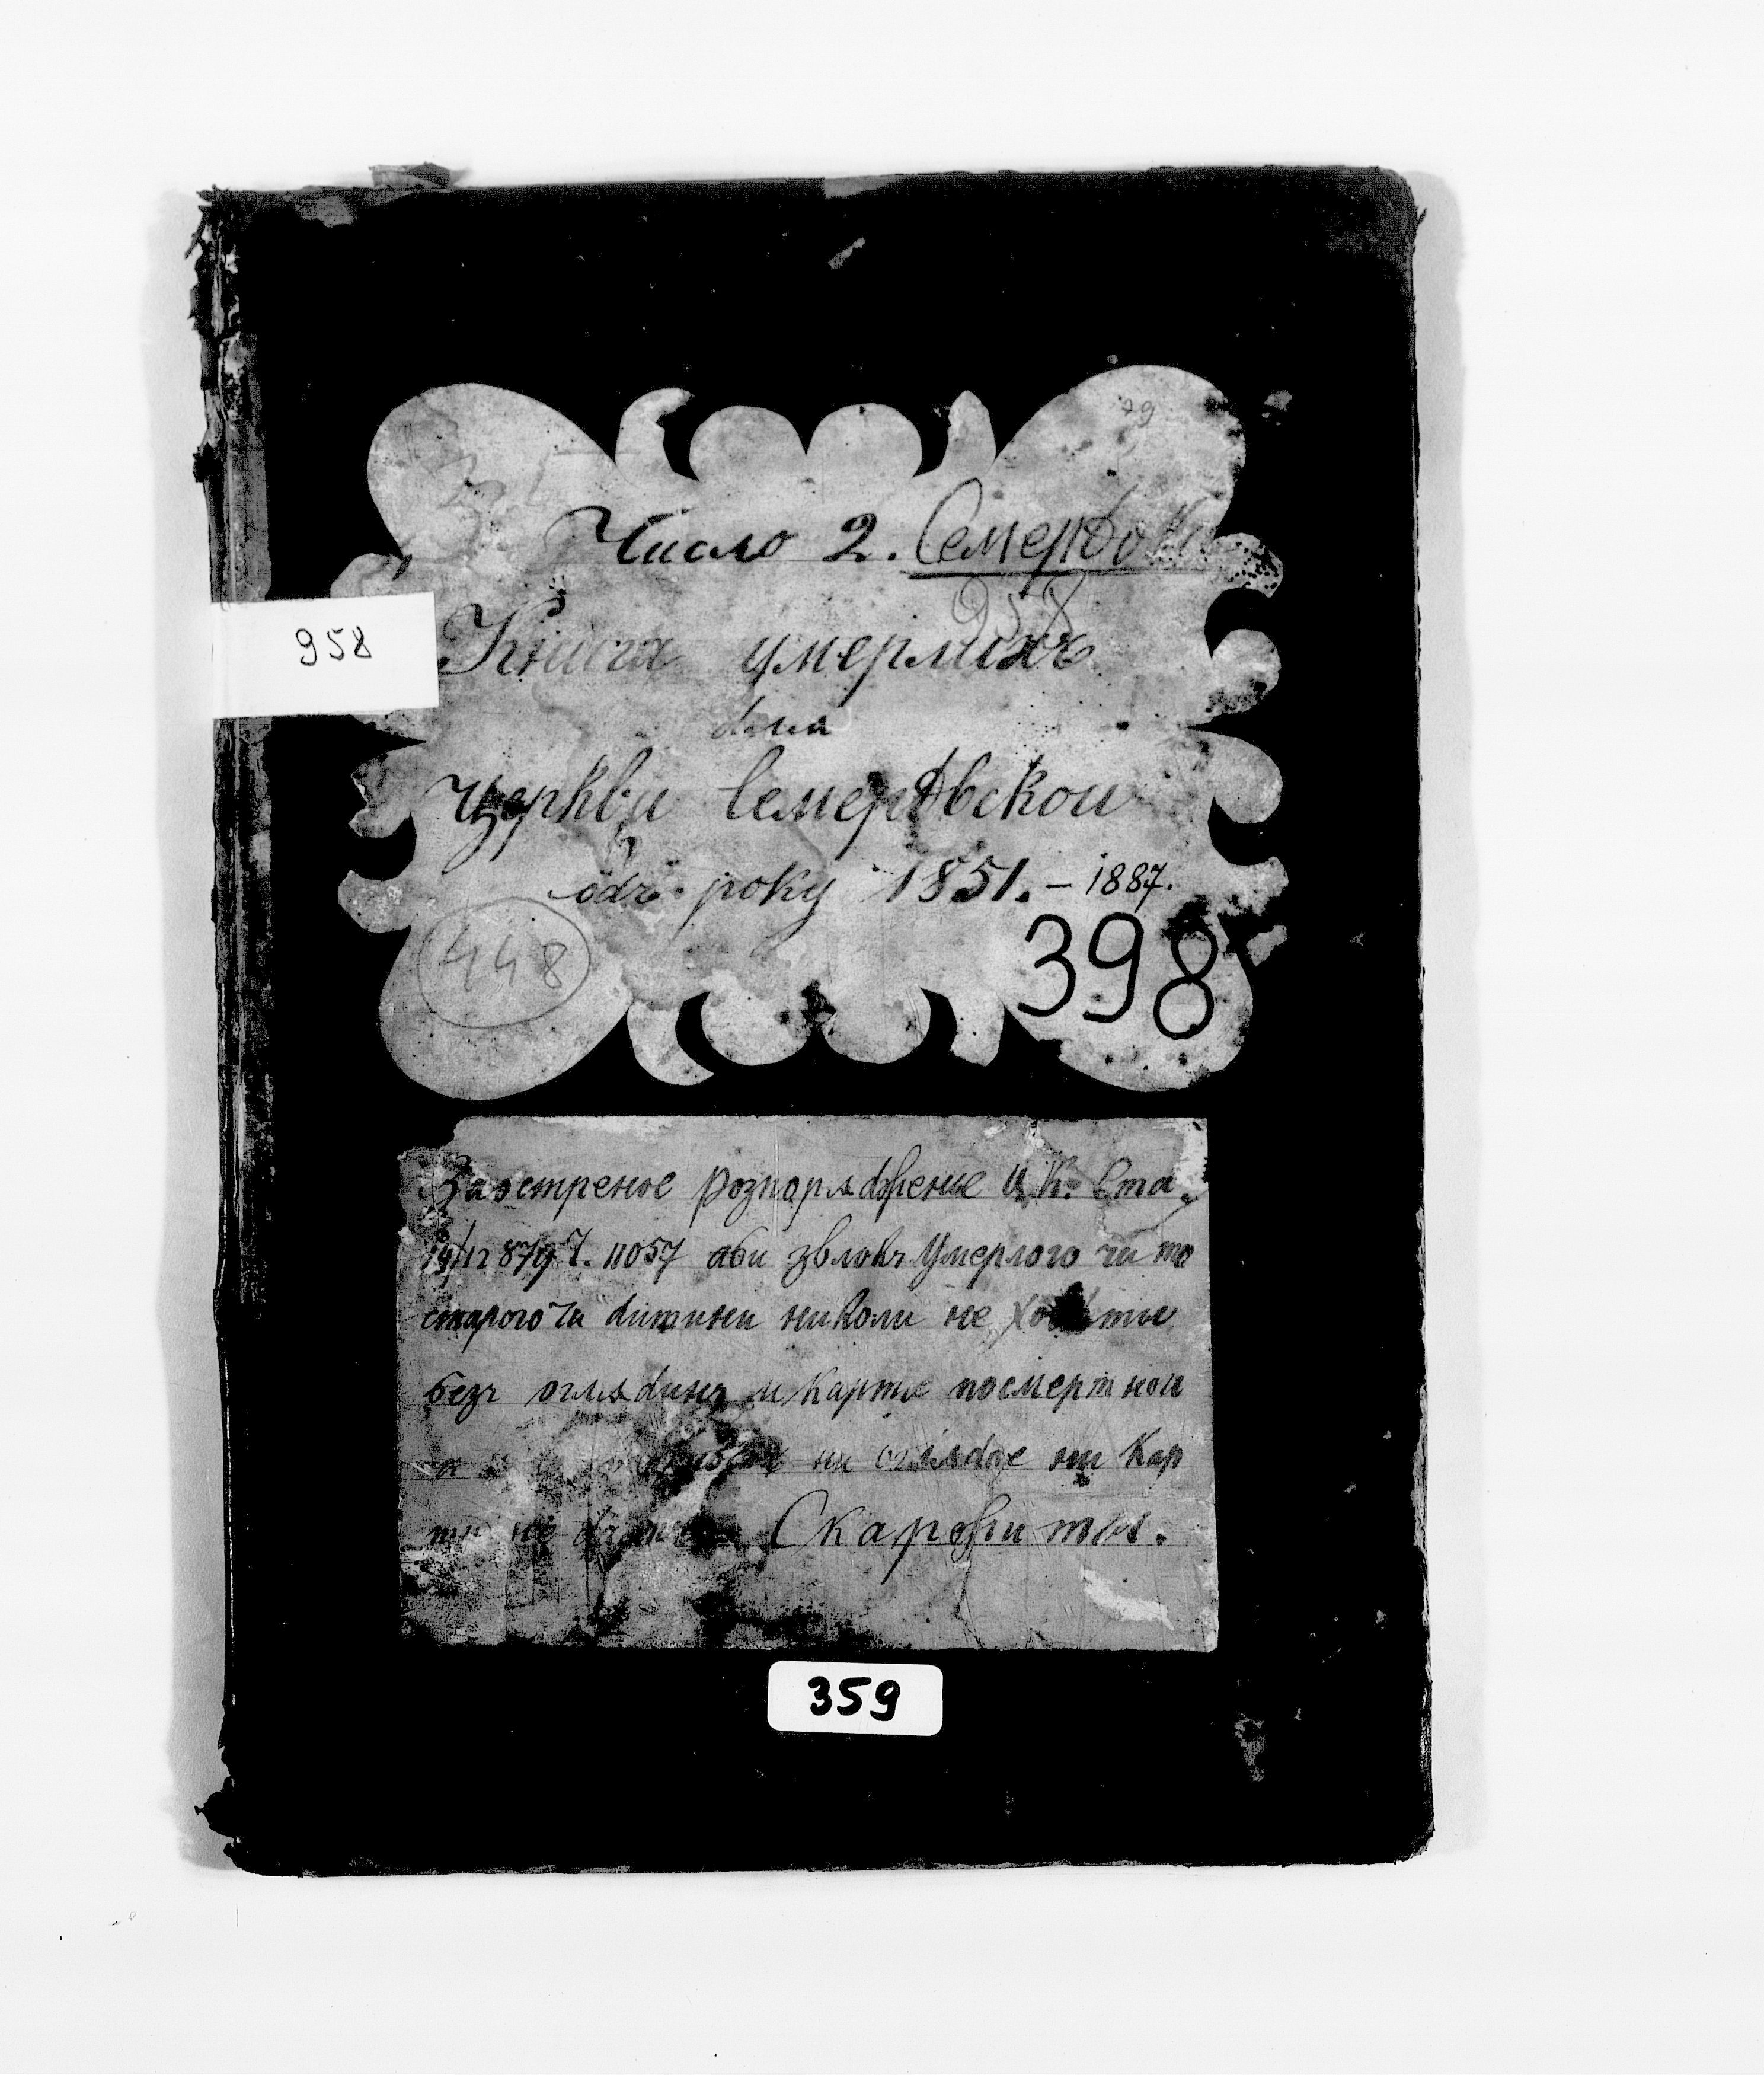 79
Число 2. Семерôвка
958
958
Книга умерлихъ
для
церкви Семерôвскои
ôдъ року 1851. – 1887.
448
398
Заострене розпорядженье Ц. К. Ста.
19/12 879 Ч. 11057 аби зволокъ умерлого чи то
старого чи дитини николи не ховати
безъ оглядинъ и карты посмертнои
ни оглядае ни кар
ти не
Скаровити.
359